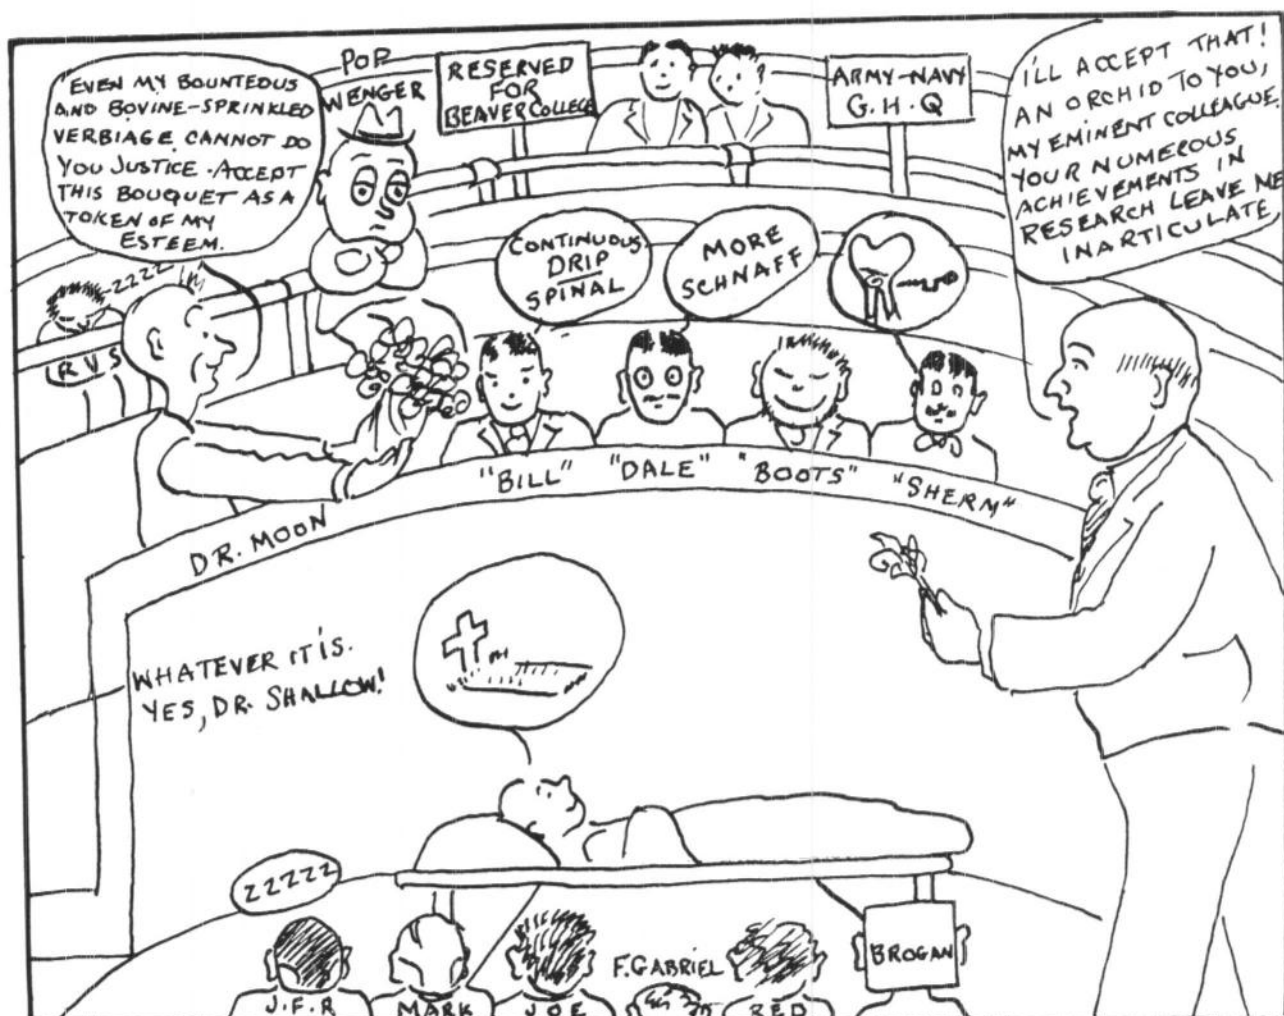 EVEN MY BOUNTEOUS
AND BOVINE-SPRINKLED
VERBIAGE CANNOT DO
YOU JUSTICE. ACCEPT
THIS BOUQUET AS A
TOKEN OF MY
ESTEEM.
POP
WENGER
RESERVED
FOR
BEAVER COLLEGE
ARMY-NAVY
G.H.Q
I'LL ACCEPT THAT!
AN ORCHID TO YOU,
MY EMINENT COLLEAGUE.
YOUR NUMEROUS
ACHIEVEMENTS IN
RESEARCH LEAVE ME
INARTICULATE
ZZZZ
RVS
CONTINUOUS
DRIP
SPINAL
MORE
SCHNAFF
"BILL" "DALE" "BOOTS" "SHERM"
DR. MOON
WHATEVER IT IS.
YES, DR. SHALLOW!
ZZZZZ
J.F.R
MARK
JOE
F. GABRIEL
RED
BROGAN